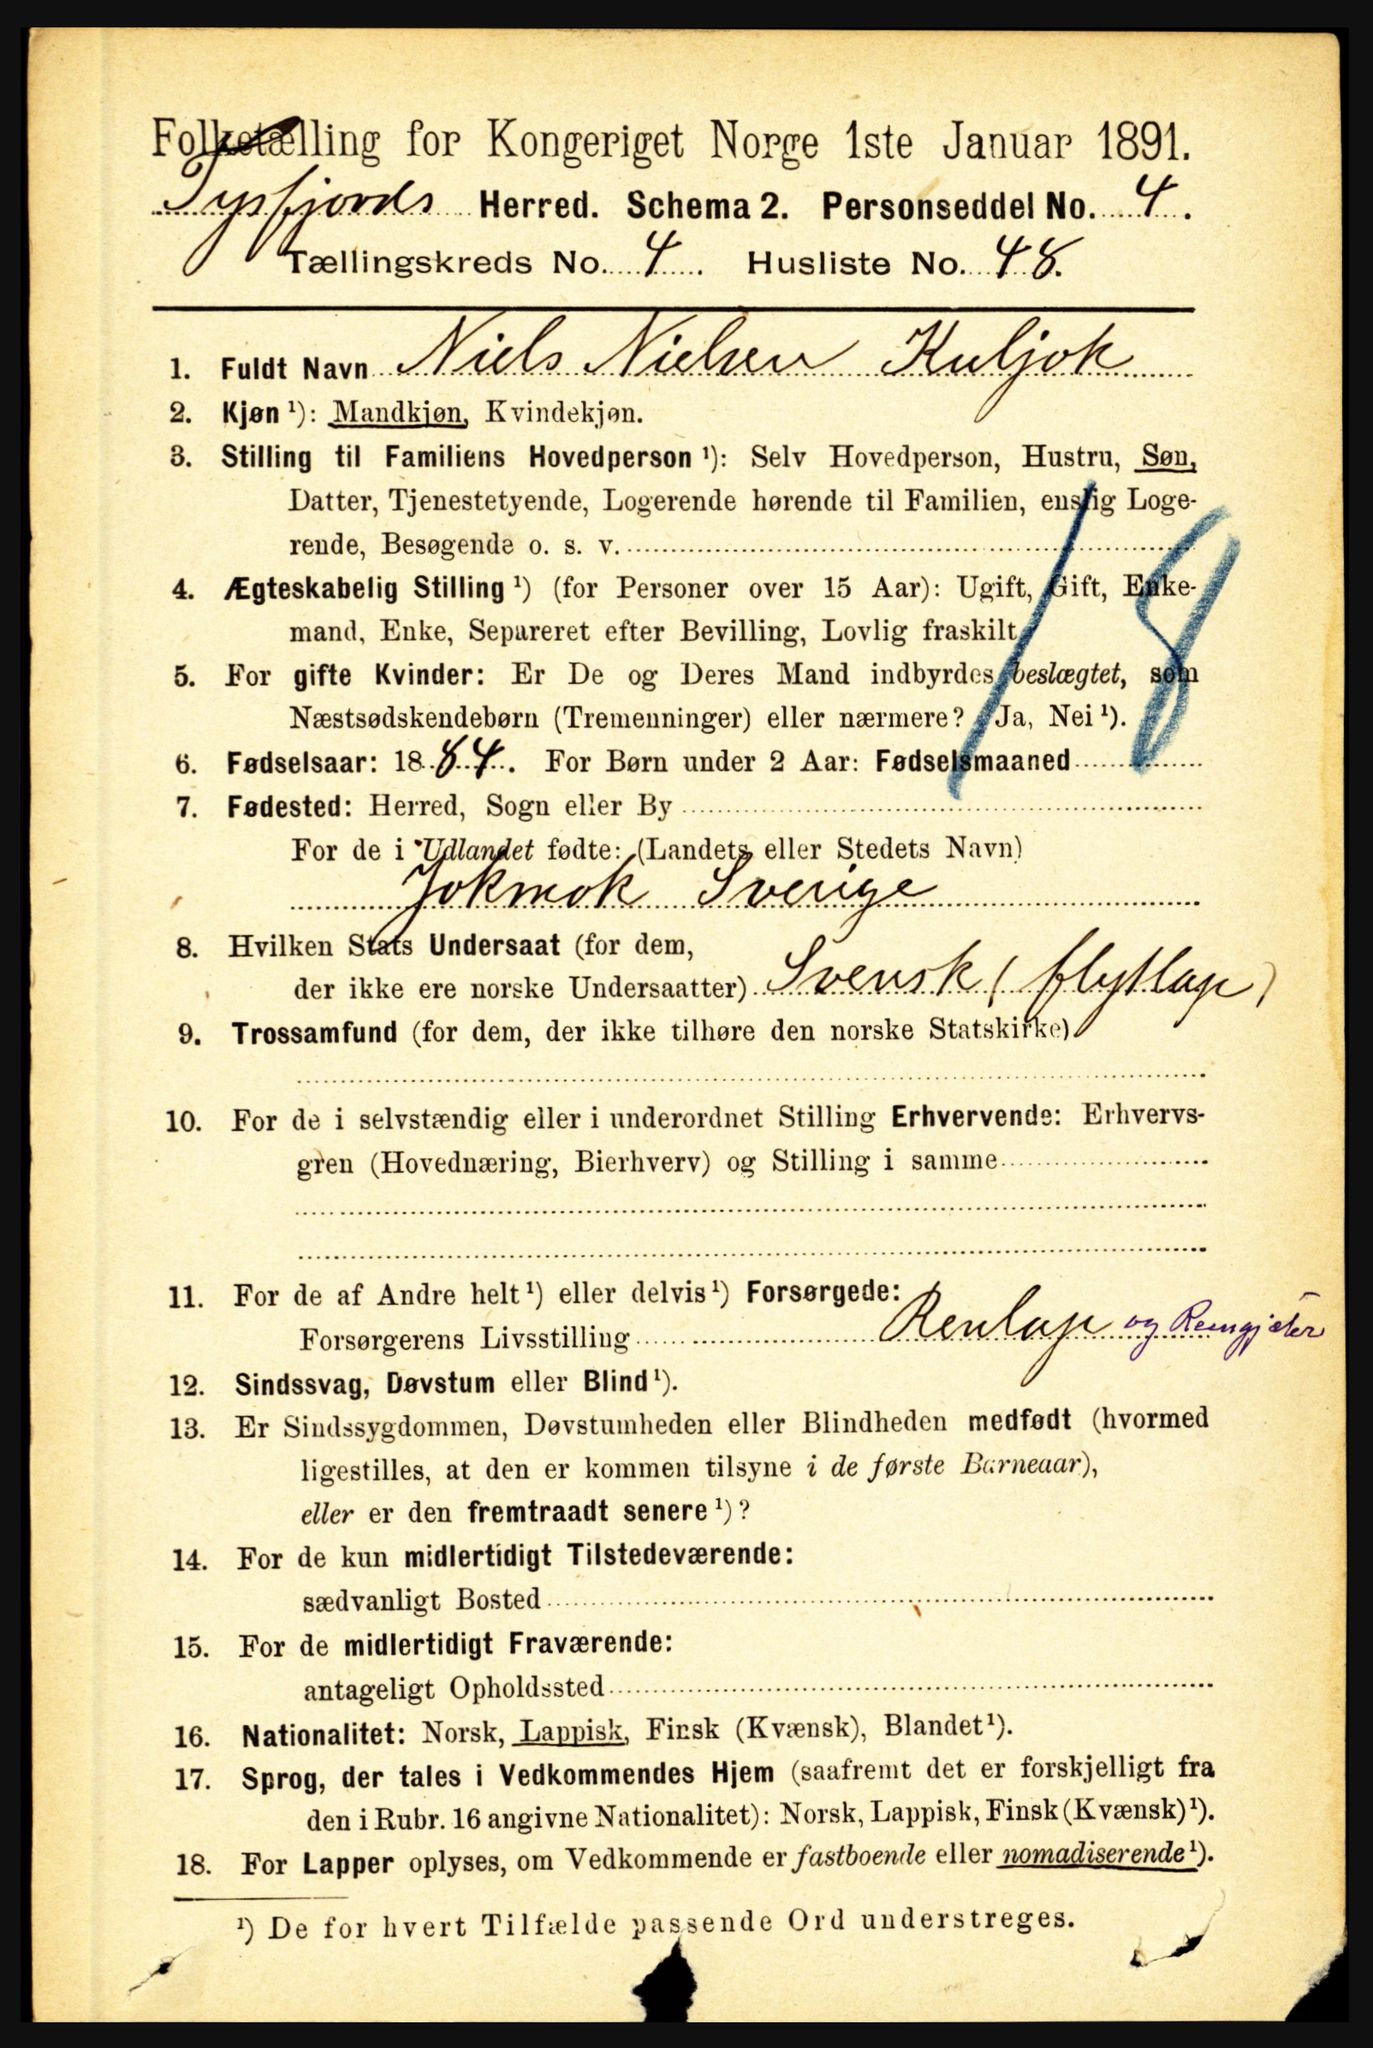 Folketælling for Kongeriget Norge 1ste Januar 1891.
Tysfjords Herred. Schema 2. Personseddel No. 4.
Tællingskreds No. 4. Husliste No. 48.
1. Fuldt Navn Niels Nielsen Kuljok
2. Kjøn ¹): Mandkjøn, Kvindekjøn.
3. Stilling til Familiens Hovedperson ¹): Selv Hovedperson, Hustru, Søn,
Datter, Tjenestetyende, Logerende hørende til Familien, enslig Loge-
rende, Besøgende o. s. v.
18
4. Ægteskabelig Stilling ¹) (for Personer over 15 Aar): Ugift, Gift, Enke-
mand, Enke, Separeret efter Bevilling, Lovlig fraskilt
5. For gifte Kvinder: Er De og Deres Mand indbyrdes beslægtet, som
Næstsødskendebørn (Tremenninger) eller nærmere? Ja, Nei ¹).
6. Fødselsaar: 1884. For Børn under 2 Aar: Fødselsmaaned
7. Fødested: Herred, Sogn eller By
For de i Udlandet fødte: (Landets eller Stedets Navn)
Jokmok Sverige
8. Hvilken Stats Undersaat (for dem,
der ikke ere norske Undersaatter) Svensk (flytlap)
9. Trossamfund (for dem, der ikke tilhøre den norske Statskirke)
10. For de i selvstændig eller i underordnet Stilling Erhvervende: Erhvervs-
gren (Hovednæring, Bierhverv) og Stilling i samme
11. For de af Andre helt ¹) eller delvis ¹) Forsørgede:
Forsørgerens Livsstilling Renlap og Rengjæter
12. Sindssvag, Døvstum eller Blind ¹).
13. Er Sindssygdommen, Døvstumheden eller Blindheden medfødt (hvormed
ligestilles, at den er kommen tilsyne i de første Barneaar),
eller er den fremtraadt senere ¹)?
14. For de kun midlertidigt Tilstedeværende:
sædvanligt Bosted
15. For de midlertidigt Fraværende:
antageligt Opholdssted
16. Nationalitet: Norsk, Lappisk, Finsk (Kvænsk), Blandet ¹).
17. Sprog, der tales i Vedkommendes Hjem (saafremt det er forskjelligt fra
den i Rubr. 16 angivne Nationalitet): Norsk, Lappisk, Finsk (Kvænsk) ¹).
18. For Lapper oplyses, om Vedkommende er fastboende eller nomadiserende ¹).
¹) De for hvert Tilfælde passende Ord understreges.